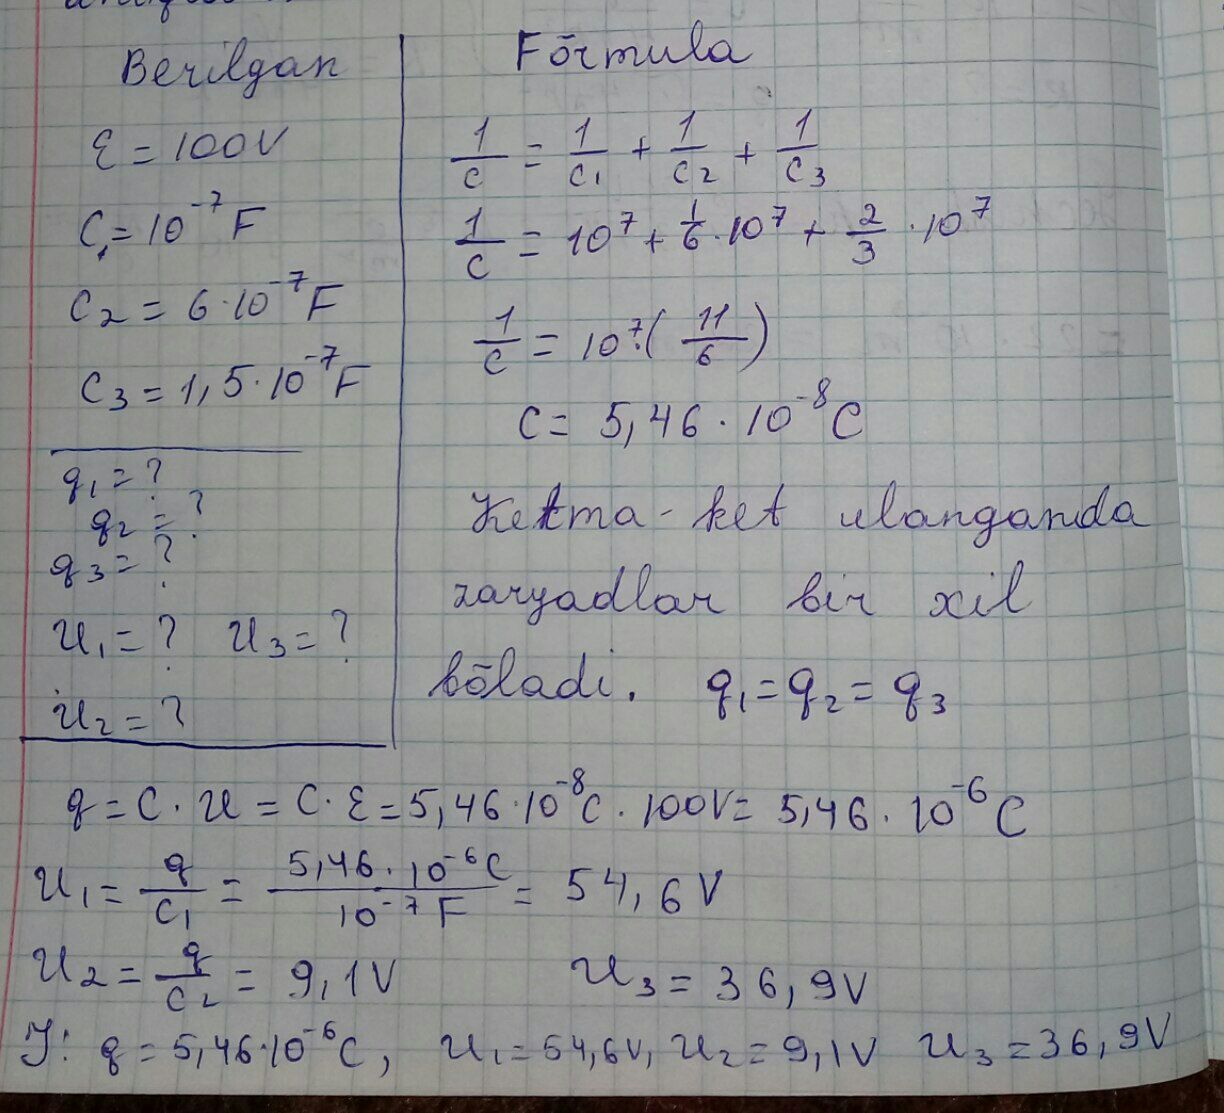 Berilgan
ε = 100V
C₁ = 10⁻⁷ F
C₂ = 6·10⁻⁷ F
C₃ = 1,5·10⁻⁷ F
q₁ = ?
q₂ = ?
q₃ = ?
U₁ = ? U₃ = ?
U₂ = ?
Fōrmula
1/C = 1/C₁ + 1/C₂ + 1/C₃
1/C = 10⁷ + 1/6·10⁷ + 2/3·10⁷
1/C = 10⁷·(11/6)
C = 5,46·10⁻⁸ C
Ketma-ket ulanganda
zaryadlar bir xil
bōladi. q₁ = q₂ = q₃
q = C·U = C·ε = 5,46·10⁻⁸C·100V = 5,46·10⁻⁶ C
U₁ = q/C₁ = 5,46·10⁻⁶C / 10⁻⁷ F = 54,6 V
U₂ = q/C₂ = 9,1V U₃ = 36,9V
J: q = 5,46·10⁻⁶C, U₁ = 54,6V, U₂ = 9,1V U₃ = 36,9V